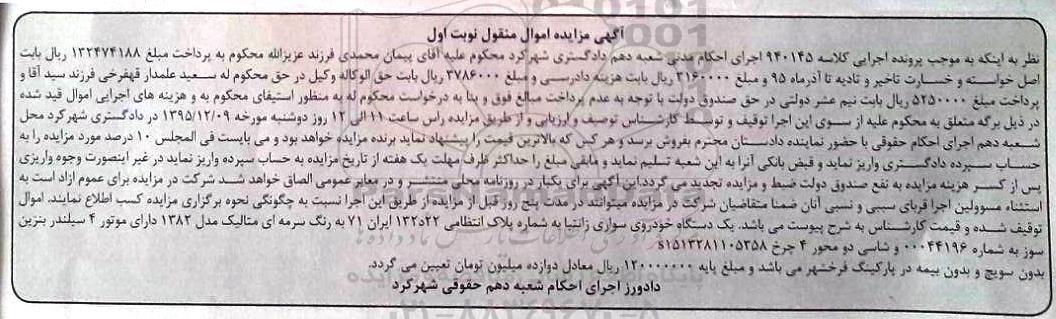 آگهی مزایده اموال منقول نوبت اول
نظر به اینکه به موجب پرونده اجرایی کلاسه ۹۴۰۱۴۵ اجرای احکام مدنی شعبه دهم دادگستری شهرکرد محکوم علیه آقای پیمان محمدی فرزند عزیزالله محکوم به پرداخت مبلغ ۱۳۲۴۷۴۱۸۸ ریال بابت
اصل خواسته و خسارت تاخیر و تادیه تا آذرماه ۹۵ و مبلغ ۳۱۶۰۰۰۰ ریال بابت هزینه دادرسی و مبلغ ۳۷۸۶۰۰۰ ریال بابت حق الوکاله وکیل در حق محکوم له سعید علمدار قهفرخی فرزند سید آقا و
پرداخت مبلغ ۵۲۵۰۰۰۰ ریال بابت نیم عشر دولتی در حق صندوق دولت با توجه به عدم پرداخت مبالغ فوق و بنا به درخواست محکوم له به منظور استیفای محکوم به و هزینه های اجرایی اموال قید شده
در ذیل برگه متعلق به محکوم علیه از سوی این اجرا توقیف و توسط کارشناس توصیف و ارزیابی و از طریق مزایده راس ساعت ۱۱ الی ۱۲ روز دوشنبه مورخه ۱۳۹۵/۱۲/۰۹ در دادگستری شهرکرد محل
شعبه دهم اجرای احکام حقوقی با حضور نماینده دادستان محترم بفروش برسد و هر کس که بالاترین قیمت را پیشنهاد نماید برنده مزایده خواهد بود و می بایست فی المجلس ۱۰ درصد مورد مزایده را به
حساب سپرده دادگستری واریز نماید و قبض بانکی آنرا به این شعبه تسلیم نماید و مابقی مبلغ را حداکثر ظرف مهلت یک هفته از تاریخ مزایده به حساب سپرده واریز نماید در غیر اینصورت وجوه واریزی
پس از کسر هزینه مزایده به نفع صندوق دولت ضبط و مزایده تجدید می گردد.این آگهی برای یکبار در روزنامه محلی منتشر و در معابر عمومی الصاق خواهد شد شرکت در مزایده برای عموم آزاد است به
استثناء مسوولین اجرا قربای سببی و نسبی آنان ضمنا متقاضیان شرکت در مزایده میتوانند در مدت پنج روز قبل از مزایده از طریق این اجرا نسبت به چگونگی نحوه برگزاری مزایده کسب اطلاع نمایند. اموال
توقیف شده و قیمت کارشناس به شرح پیوست می باشد. یک دستگاه خودروی سواری زانتیا به شماره پلاک انتظامی ۱۳۲د۲۲ ایران ۷۱ به رنگ سرمه ای متالیک مدل ۱۳۸۲ دارای موتور ۴ سیلندر بنزین
سوز به شماره ۰۰۰۴۴۱۹۶ و شاسی دو محور ۴ چرخ s۱۵۱۳۲۸۱۱۰۵۳۵۸
بدون سویچ و بدون بیمه در پارکینگ فرخشهر می باشد و مبلغ پایه ۱۲۰۰۰۰۰۰۰ ریال معادل دوازده میلیون تومان تعیین می گردد.
دادورز اجرای احکام شعبه دهم حقوقی شهرکرد